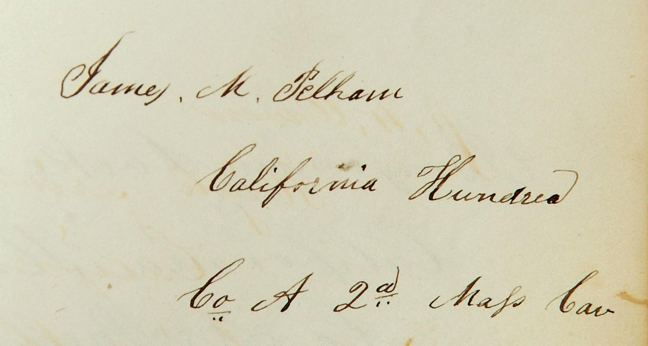 James. M. Pelham
California Hundred
Co A 2d Mass Cav